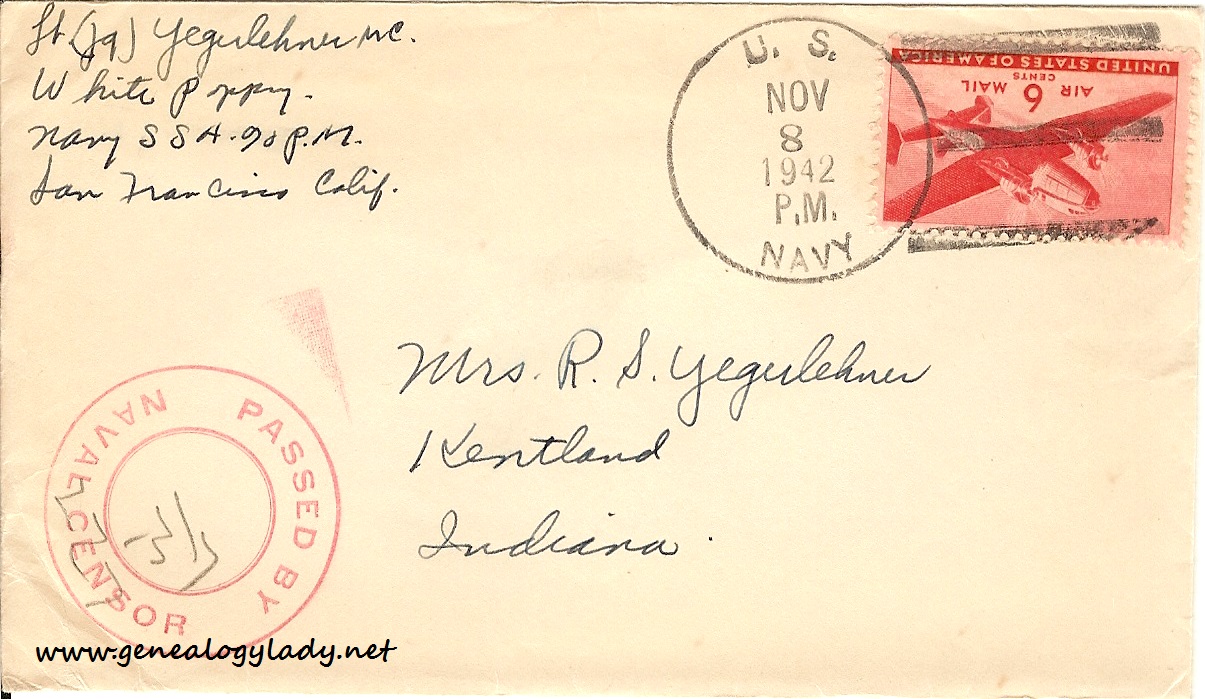 Lt. (jg) Yegerlehner MC.
White Poppy.
Navy S S A. 90 P.M.
San Francisco Calif.
U. S.
NOV
8
1942
P.M.
NAVY
UNITED STATES OF AMERICA
AIR 6 MAIL
CENTS
Mrs. R. S. Yegerlehner
Kentland
Indiana.
PASSED BY
NAVAL CENSOR
www.genealogylady.net